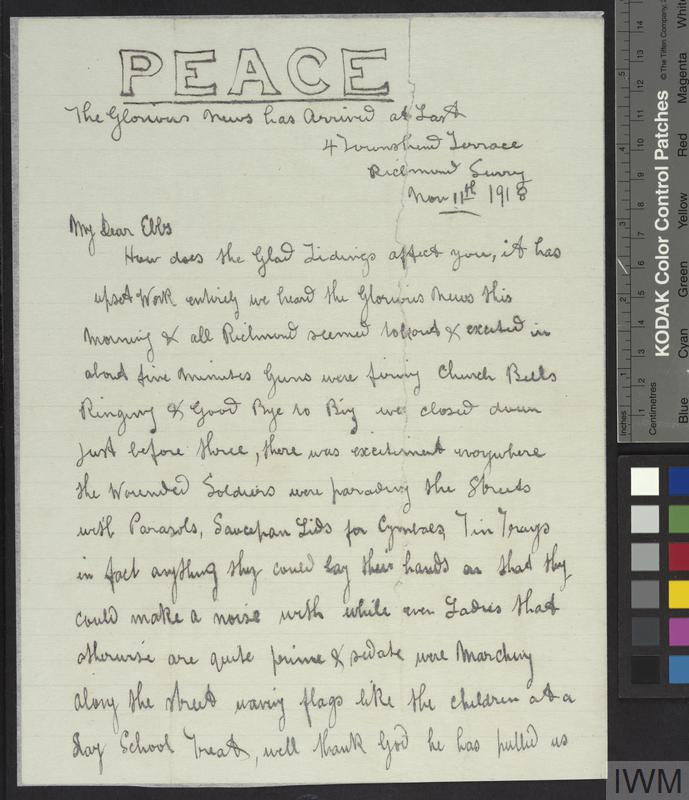 PEACE
The Glorious News has Arrived at Last
4 Townshend Terrace
Richmond Surry
Nov 11th 1918
My Dear Ebbs
How does the Glad Tidings affect you, it has
upset Work entirely we heard the Glorious News this
Morning & all Richmond seemed to & excited in
about five minutes Guns were firing Church Bells
Ringing & Good Bye to Biz we closed down
just before three, there was excitement everywhere
the Wounded Soldiers were parading the Streets
with Parasols, Saucepan Lids for Cymbals, Tin Trays
in fact anything they could lay their hands on that they
could make a noise with while even Ladies that
otherwise are quite prime & sedate were Marching
along the street waving flags like the children at a
day School Treat, well thank God he has pulled us
KODAK Color Control Patches
© The Tiffen Company, 2
Inches
Centimetres
Blue
Cyan
Green
Yellow
Red
Magenta
White
IWM